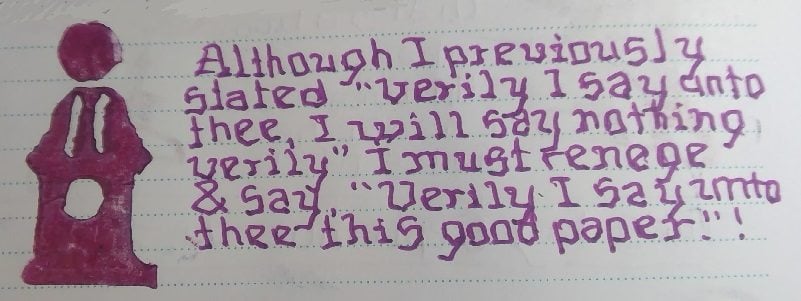 Although I previously
stated "Verily I say unto
thee, I will say nothing
verily" I must renege
& say, "Verily I say unto
thee this good paper"!